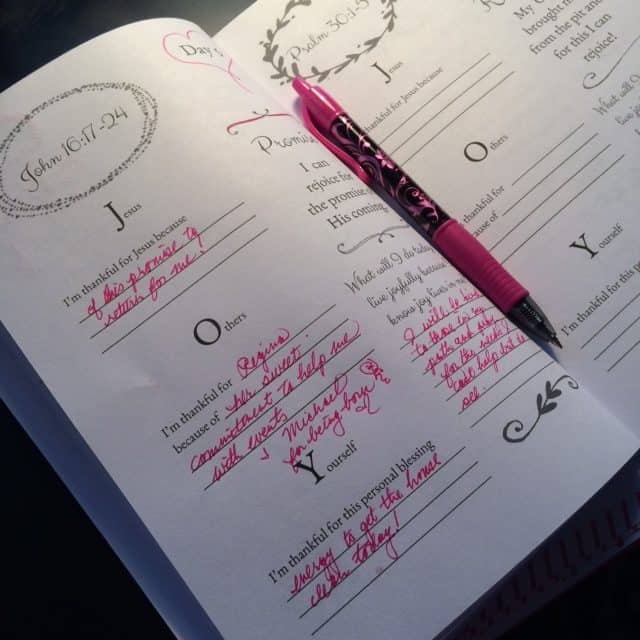 John 16:17-24
Jesus
I'm thankful for Jesus because
of his promise to
return for me!
Others
I'm thankful for Regina
because of her sweet
commitment to help me
with events
& Michael
for being home
Yourself
I'm thankful for this personal blessing
energy to get the house
clean today!
Day
Promis
I can
rejoice for
the promise
His coming
What will I do to
live joyfully because
know joy has
I will be
to those in my
path and
for the need I
can't help but
see.
Psalm 30:1-5
Jesus
thankful for Jesus because
Others
thankful for
because of
Yourself
I'm thankful for this per
My
brought m
from the pit and
for this I can
rejoice!
What will
live joy
know